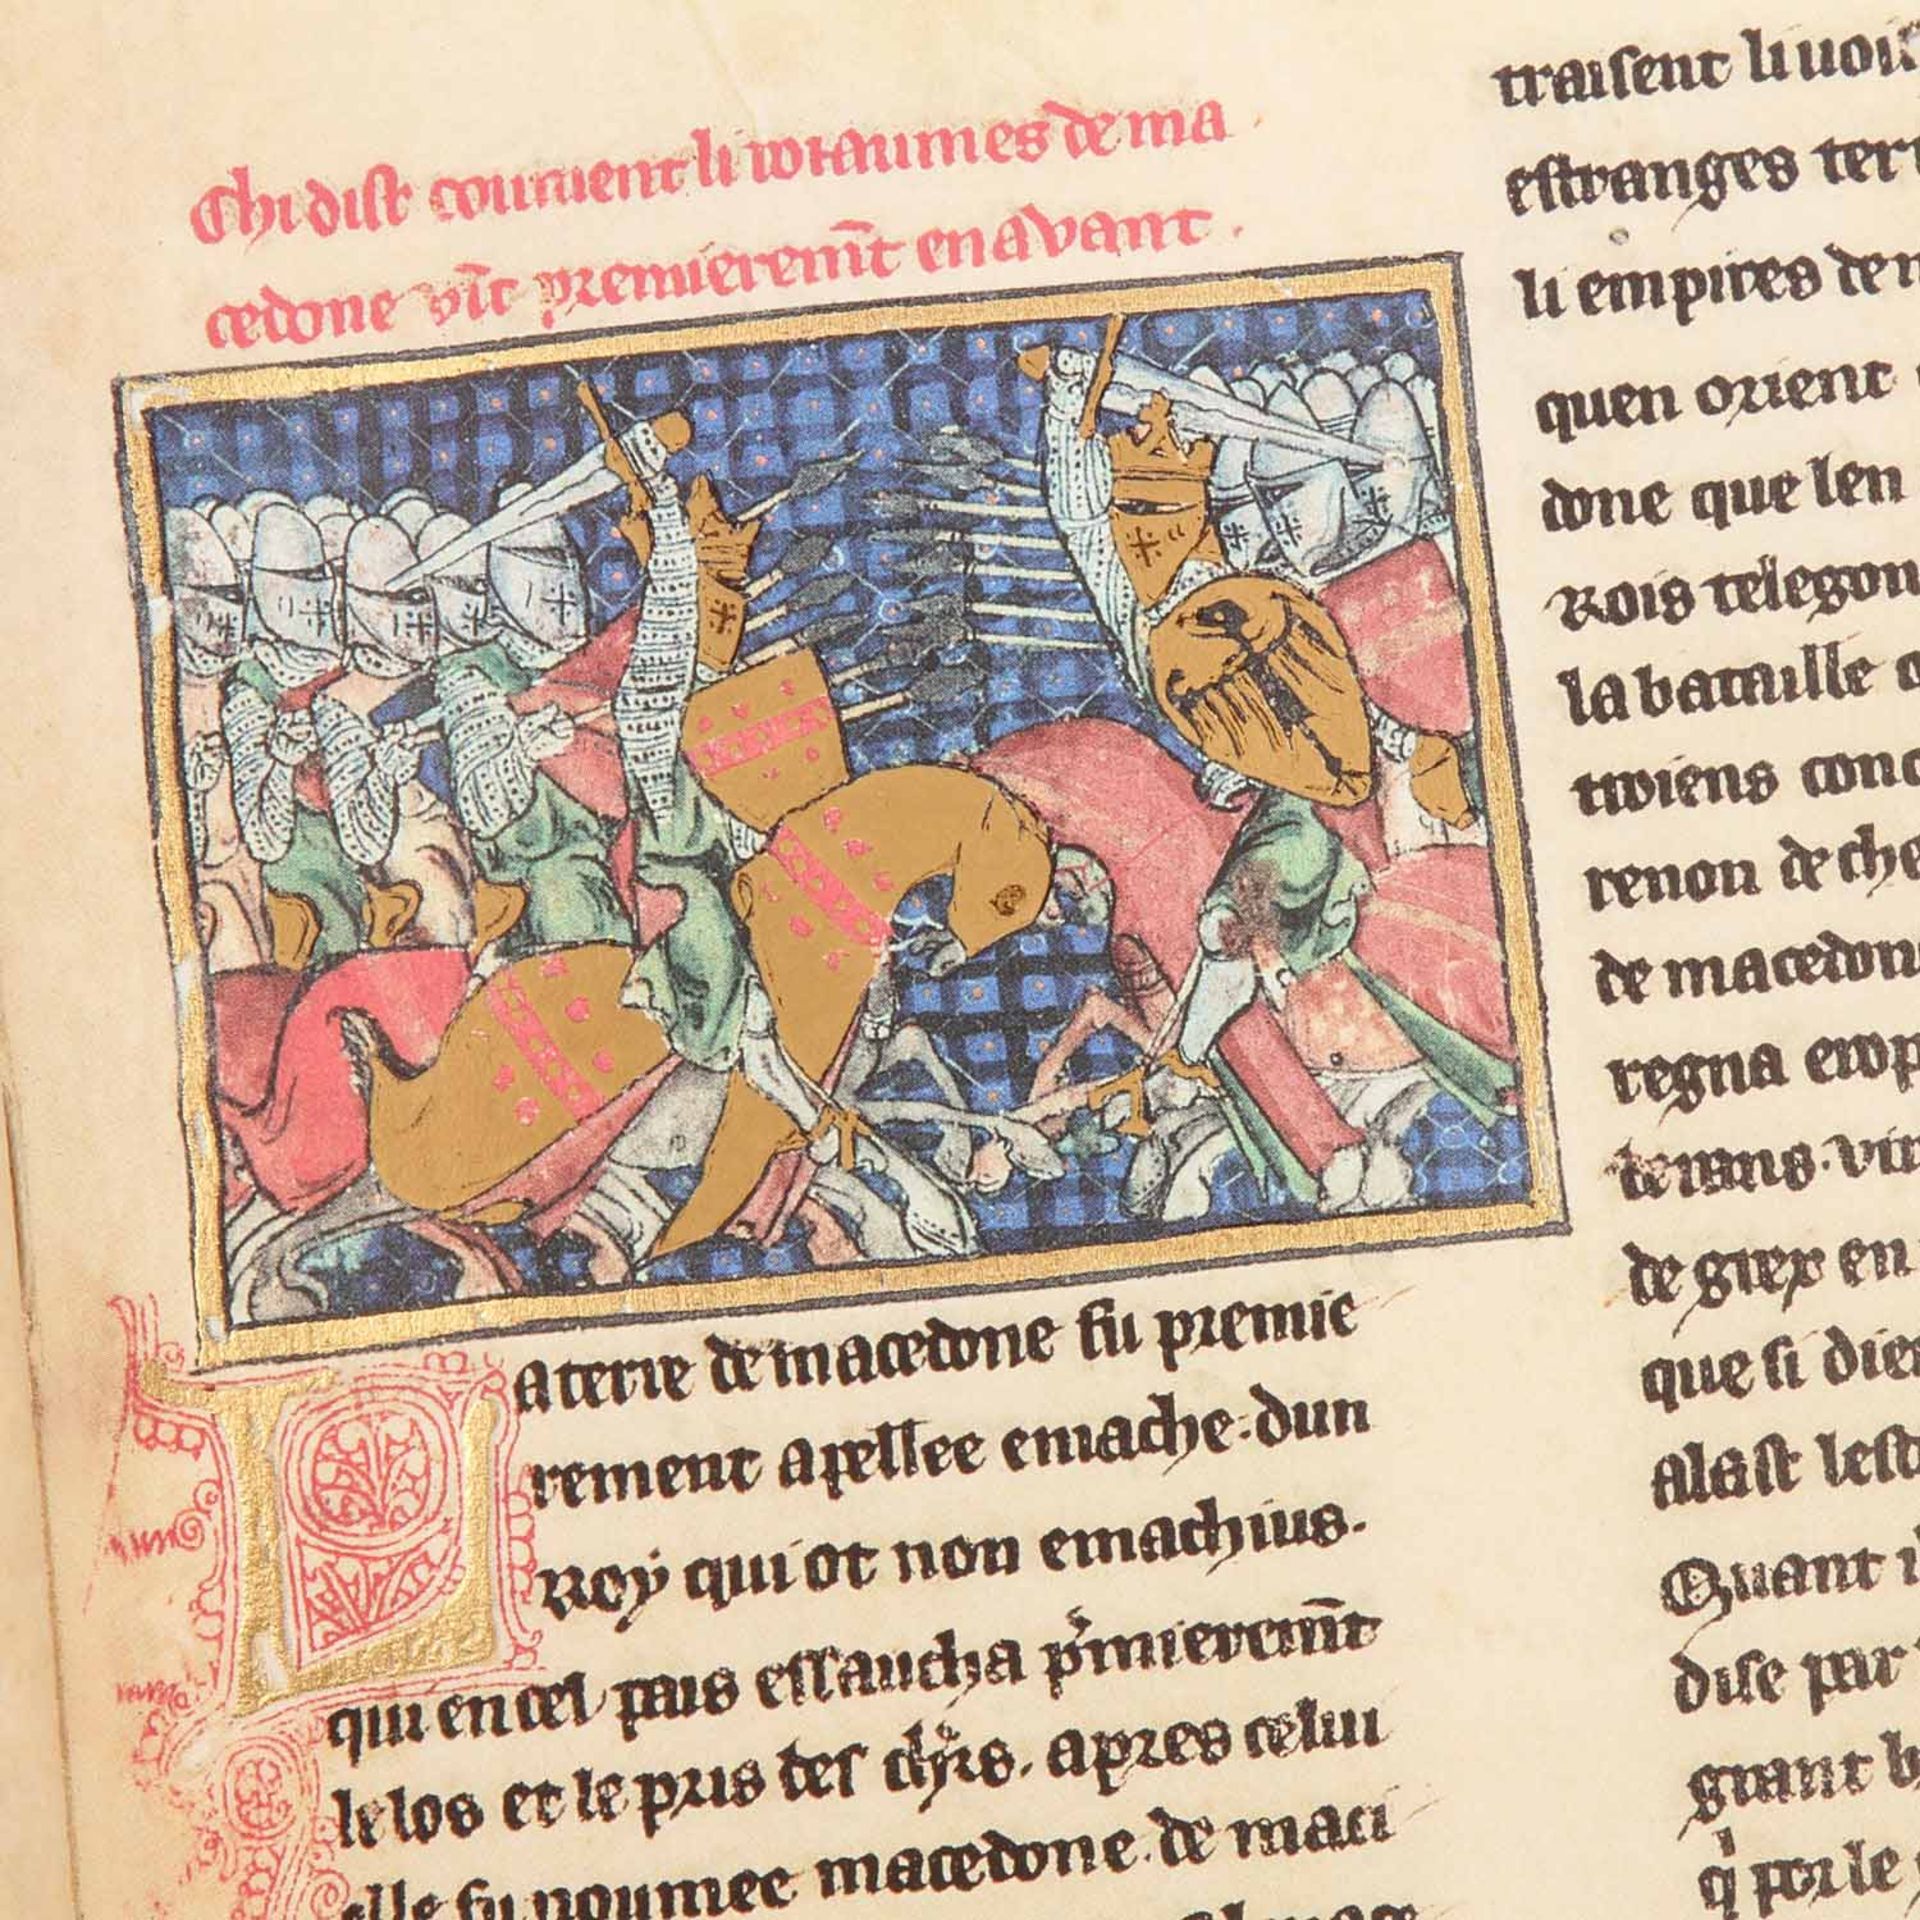 Chi dist comment li roiaumes de ma
cedone vīt premieremīt en avant.
La terre de macedone fu premie
rement apellee emache. dun
Roy qui ot non emachius.
qui en cel pais essaucha pʼmieremīt
le los et le pris des
apres celui
elle fu noumee macedone. de maci
traisent li uois
estranges terr
li empires de m
quen orient
done que len
Rois telegon
la bataille
troiens conc
renon de che
de macedon
regna
de .vii
de grex en
que si dien
Quant i
dise par
grant b
qʼ por le